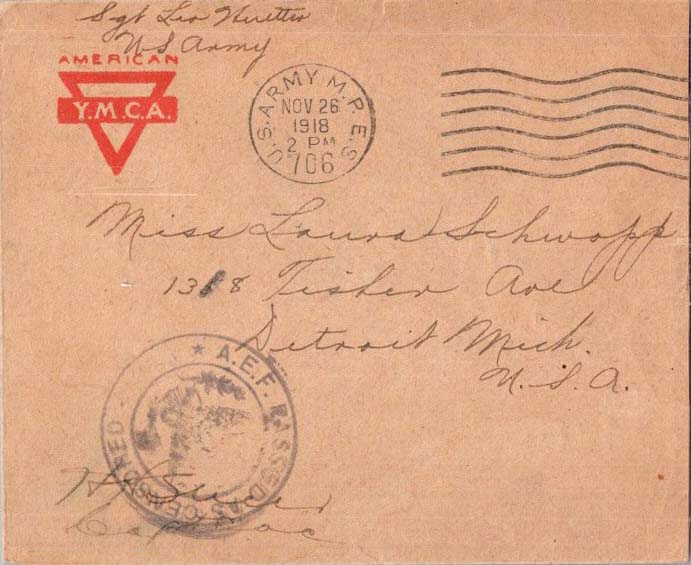 Sgt Leo
US Army
AMERICAN
Y.M.C.A.
U.S. ARMY M.P.E.S.
NOV 26
1918
2 PM
706
Miss Laura Schwopp
1318 Fisher Ave
Detroit Mich.
U.S.A.
A.E.F. PASSED AS CENSORED